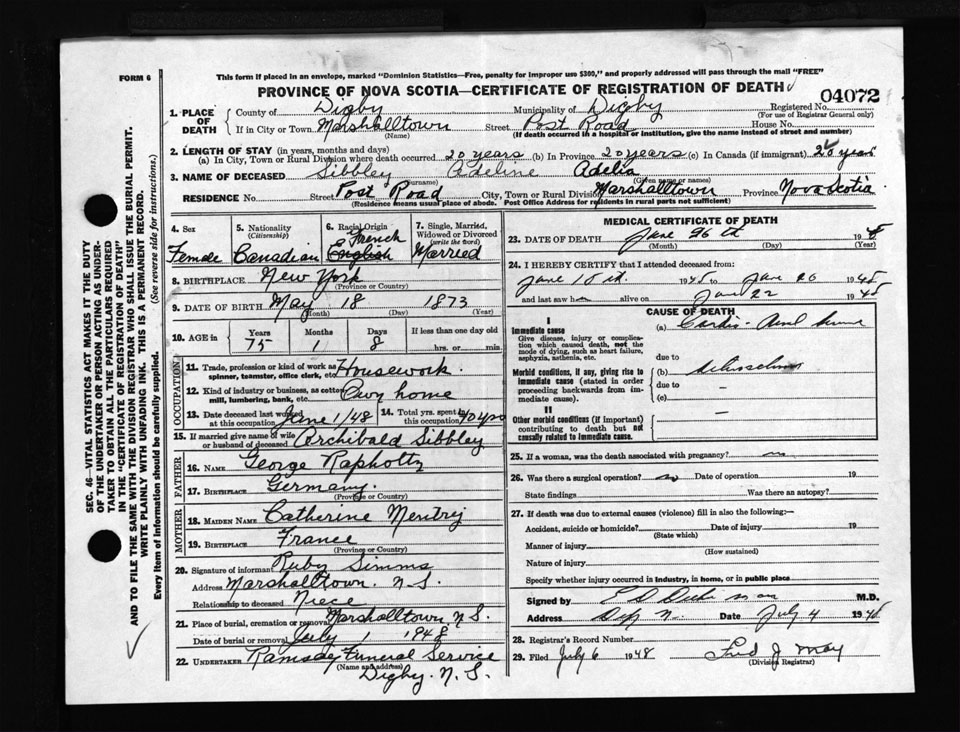 FORM 6
This form if placed in an envelope, marked "Dominion Statistics—Free, penalty for improper use $300," and properly addressed will pass through the mail "FREE"
PROVINCE OF NOVA SCOTIA—CERTIFICATE OF REGISTRATION OF DEATH
04072
1. PLACE OF DEATH County of Digby Municipality of Digby Registered No. (For use of Registrar General only)
If in City or Town Marshalltown (Name) Street Post Road House No.
(If death occurred in a hospital or institution, give the name instead of street and number)
2. LENGTH OF STAY (in years, months and days)
(a) In City, Town or Rural Division where death occurred 20 years (b) In Province 20 years (c) In Canada (if immigrant) 20 years
3. NAME OF DECEASED Sibbley Adeline Adelia
(Surname) (Given name or names)
RESIDENCE No. Street Post Road City, Town or Rural Division Marshalltown Province Nova Scotia
(Residence means usual place of abode. Post Office Address for residents in rural parts not sufficient)
4. Sex Female
5. Nationality (Citizenship) Canadian
6. Racial Origin French English
7. Single, Married, Widowed or Divorced (write the word) Married
8. BIRTHPLACE New York
(Province or Country)
9. DATE OF BIRTH May 18 1873
(Month) (Day) (Year)
10. AGE in Years Months Days If less than one day old
75 1 8 hrs. or min.
OCCUPATION
11. Trade, profession or kind of work as spinner, teamster, office clerk, etc. Housework.
12. Kind of industry or business, as cotton mill, lumbering, bank, etc. Own home
13. Date deceased last worked at this occupation June 1/48 14. Total yrs. spent in this occupation 40 yrs
15. If married give name of wife or husband of deceased Archibald Sibbley
FATHER
16. NAME George Rapholtz
17. BIRTHPLACE Germany.
(Province or Country)
MOTHER
18. MAIDEN NAME Catherine
19. BIRTHPLACE France
(Province or Country)
20. Signature of informant Ruby Simms
Address Marshalltown. N.S.
Relationship to deceased Niece
21. Place of burial, cremation or removal Marshalltown, N.S.
Date of burial or removal July 1 1948
22. UNDERTAKER Ramsay Funeral Service
(Name and address)
Digby. N.S.
MEDICAL CERTIFICATE OF DEATH
23. DATE OF DEATH June 26th 1948
(Month) (Day) (Year)
24. I HEREBY CERTIFY that I attended deceased from:
June 15th 1948 to June 26 1948
and last saw h alive on June 22 1948
CAUSE OF DEATH
I
Immediate cause
Give disease, injury or complication which caused death, not the mode of dying, such as heart failure, asphyxia, asthenia, etc.
(a)
due to
Morbid conditions, if any, giving rise to immediate cause (stated in order proceeding backwards from immediate cause).
(b)
due to
(c)
II
Other morbid conditions (if important) contributing to death but not causally related to immediate cause.
25. If a woman, was the death associated with pregnancy? no
26. Was there a surgical operation? no Date of operation 19
State findings Was there an autopsy?
27. If death was due to external causes (violence) fill in also the following:—
Accident, suicide or homicide? Date of injury 19
(State which)
Manner of injury
(How sustained)
Nature of injury
Specify whether injury occurred in industry, in home, or in public place
Signed by M.D.
Address Date July 4 1948
28. Registrar's Record Number
29. Filed July 6 1948 Fred J May
(Division Registrar)
SEC. 46—VITAL STATISTICS ACT MAKES IT THE DUTY
OF THE UNDERTAKER OR PERSON ACTING AS UNDER-
TAKER TO OBTAIN ALL THE PARTICULARS REQUIRED
IN THE "CERTIFICATE OF REGISTRATION OF DEATH"
AND TO FILE THE SAME WITH THE DIVISION REGISTRAR WHO SHALL ISSUE THE BURIAL PERMIT.
WRITE PLAINLY WITH UNFADING INK. THIS IS A PERMANENT RECORD.
Every item of information should be carefully supplied. (See reverse side for instructions.)